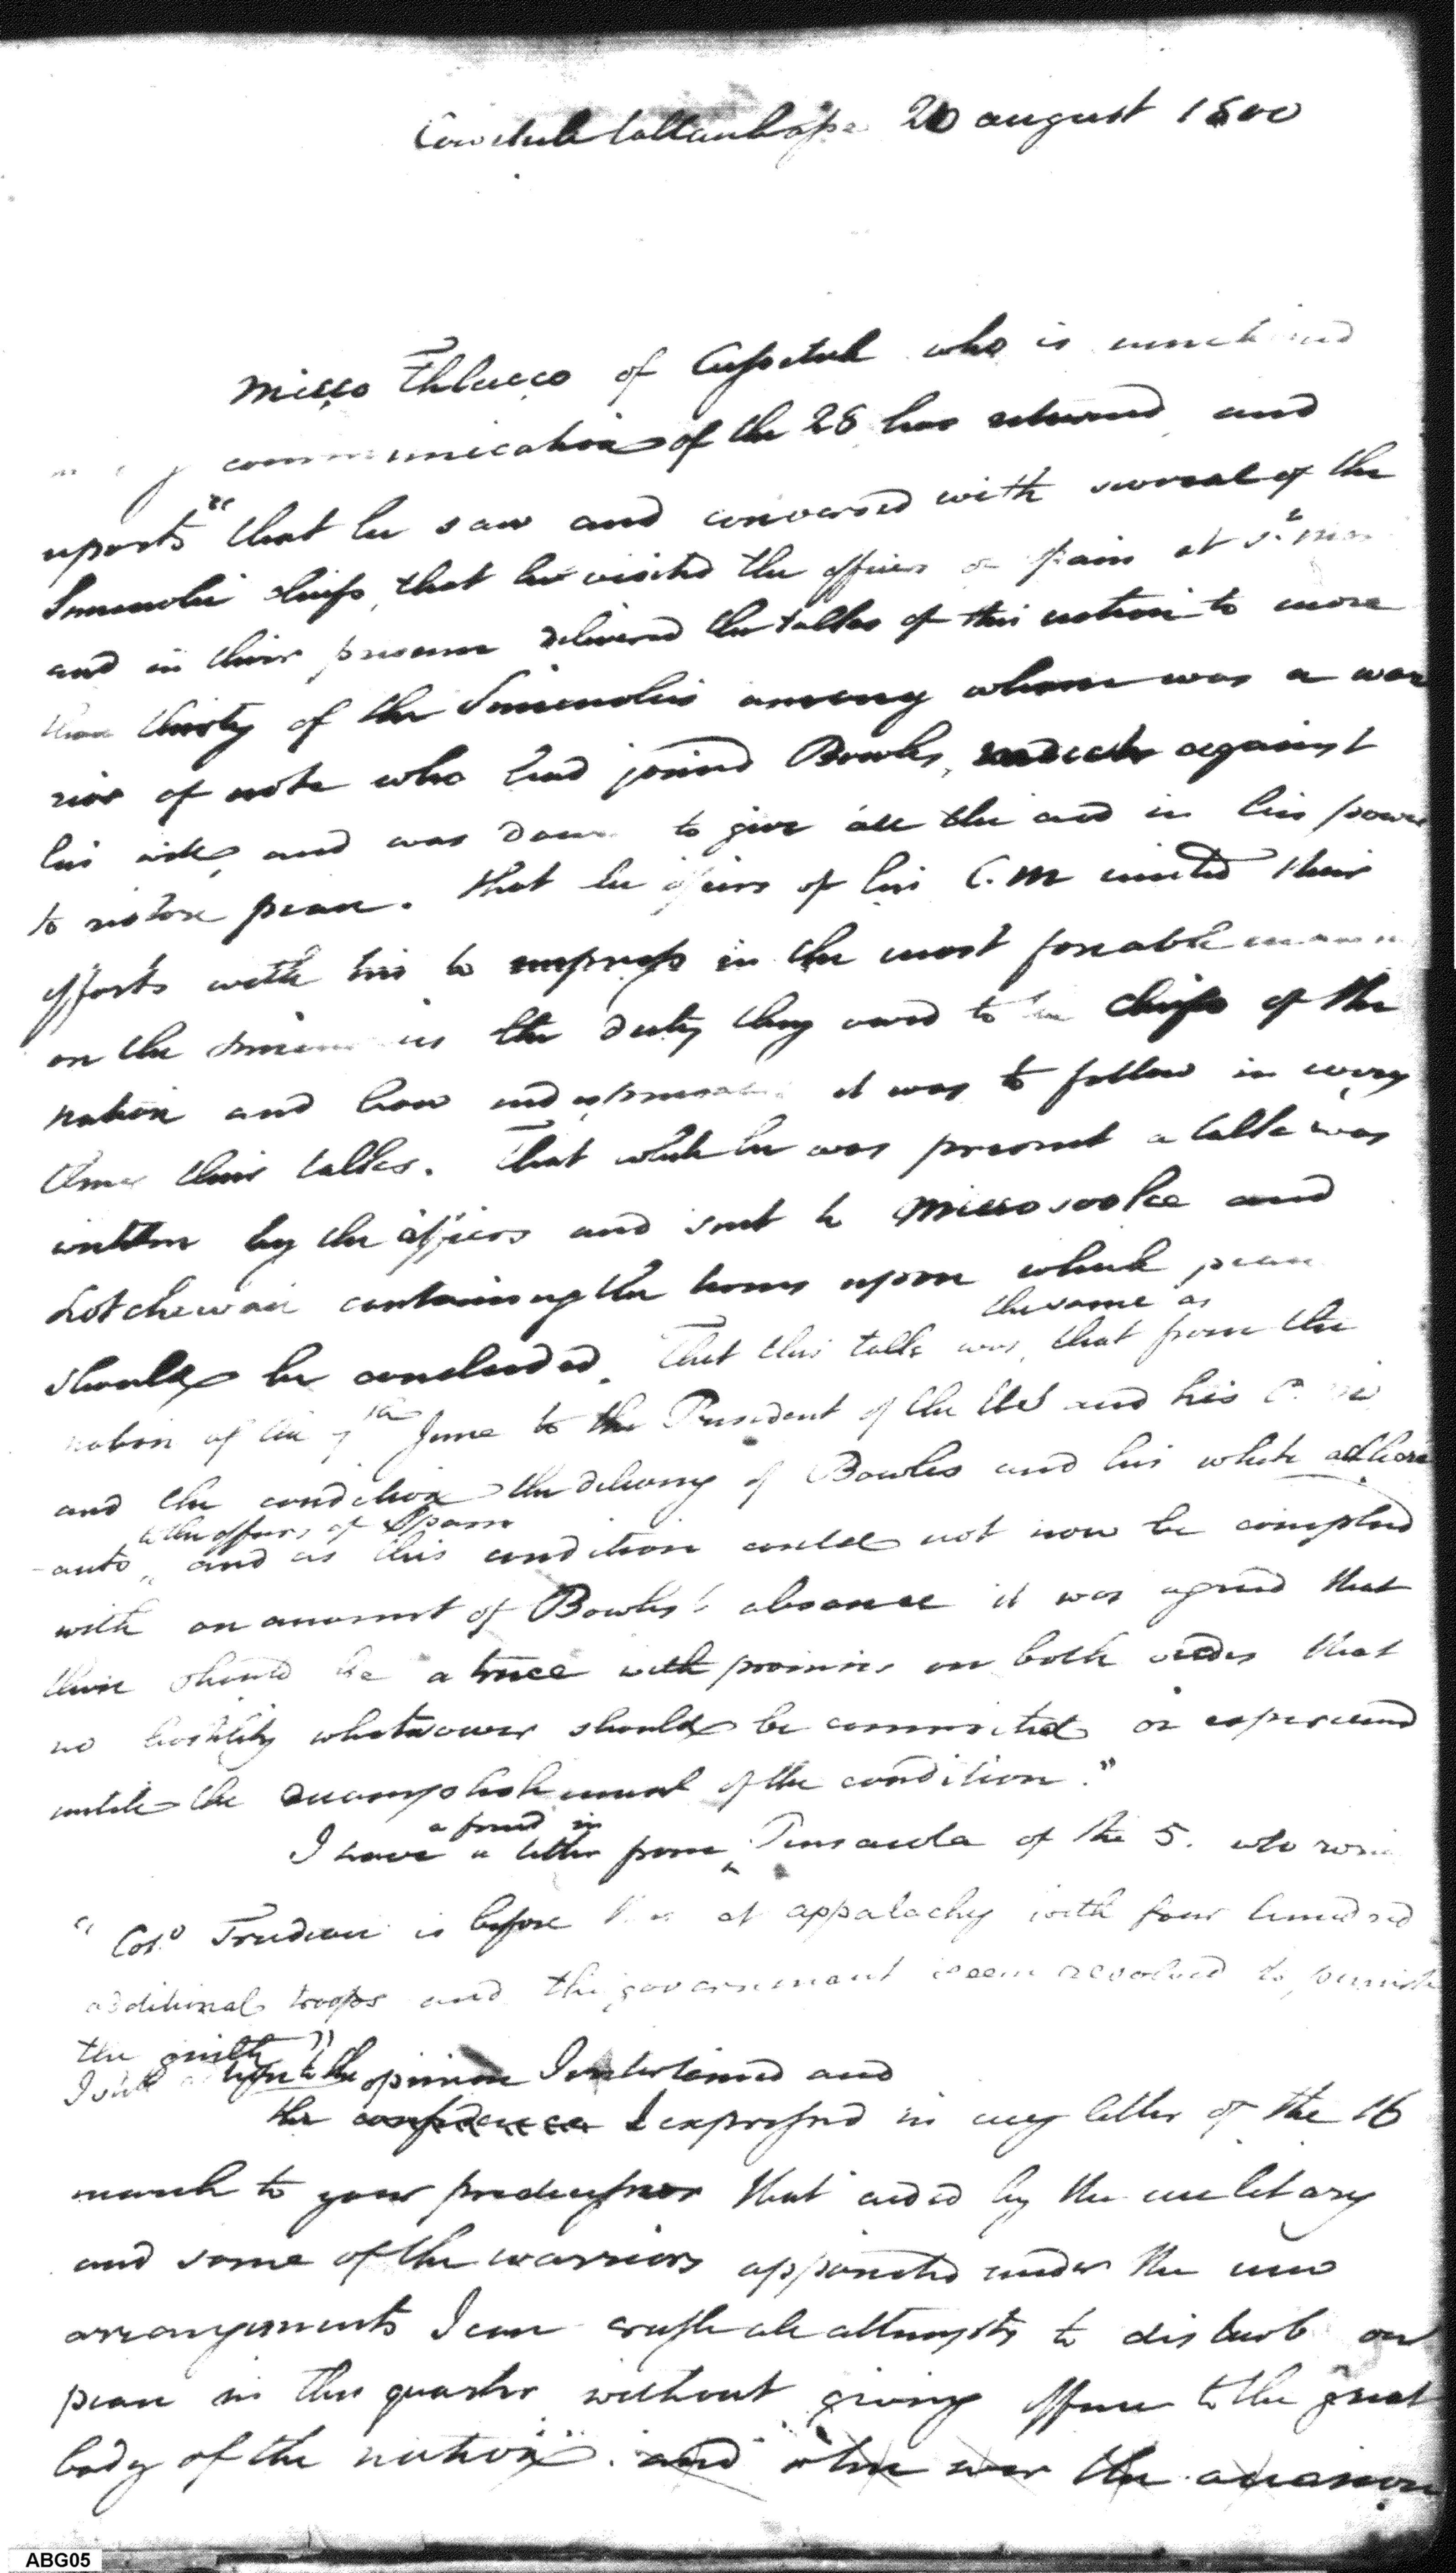 20 august 1800
Micco Thlucco of Cussetuh who is mentioned
communication of the 28 has returned, and
reports "that he saw and conversed with several of the
Simenolie chiefs, that he visited the officers of Spain at St. Marks
and in their presence delivered the talks of this nation to more
than thirty of the Simenolies among whom was a war
rior of note who had joined Bowles, against
his and was to give all the aid in his power
to restore peace. that the officers of his C.M united their
efforts with his to impress in the most forceable manner
on the Simenolies the duty they owed to the chiefs of the
nation and how indispensable it was to follow in every
their talks. That while he was present a talk was
written by the officers and sent to Miccosooke and
containing the terms upon which peace
the same as
should be concluded. That this talk was, that from the
nation of the 7th June to the President of the US and his C. M
and the condition the delivery of Bowles and his white adhere
to the officers of Spain
ants, and as this condition could not now be complied
with on account of Bowles's absence it was agreed that
there should be a truce with promises on both sides that
no hostility whatsoever should be committed or experienced
until the accomplishment of the condition."
a friend in
I have a letter from Pensacola of the 5. who
"Col.o Trudeau is before this at appalachy with four hundred
additional troops and the government seem resolved to punish
the guilty"
I still opinion I entertained and
the confidence I expressed in my letter of the 16
march to your predecessor that aided by the military
and some of the warriors appointed under the new
arrangements I can crush all attempts to disturb our
peace in this quarter without giving offence to the great
body of the nation". and the occasion
ABG05